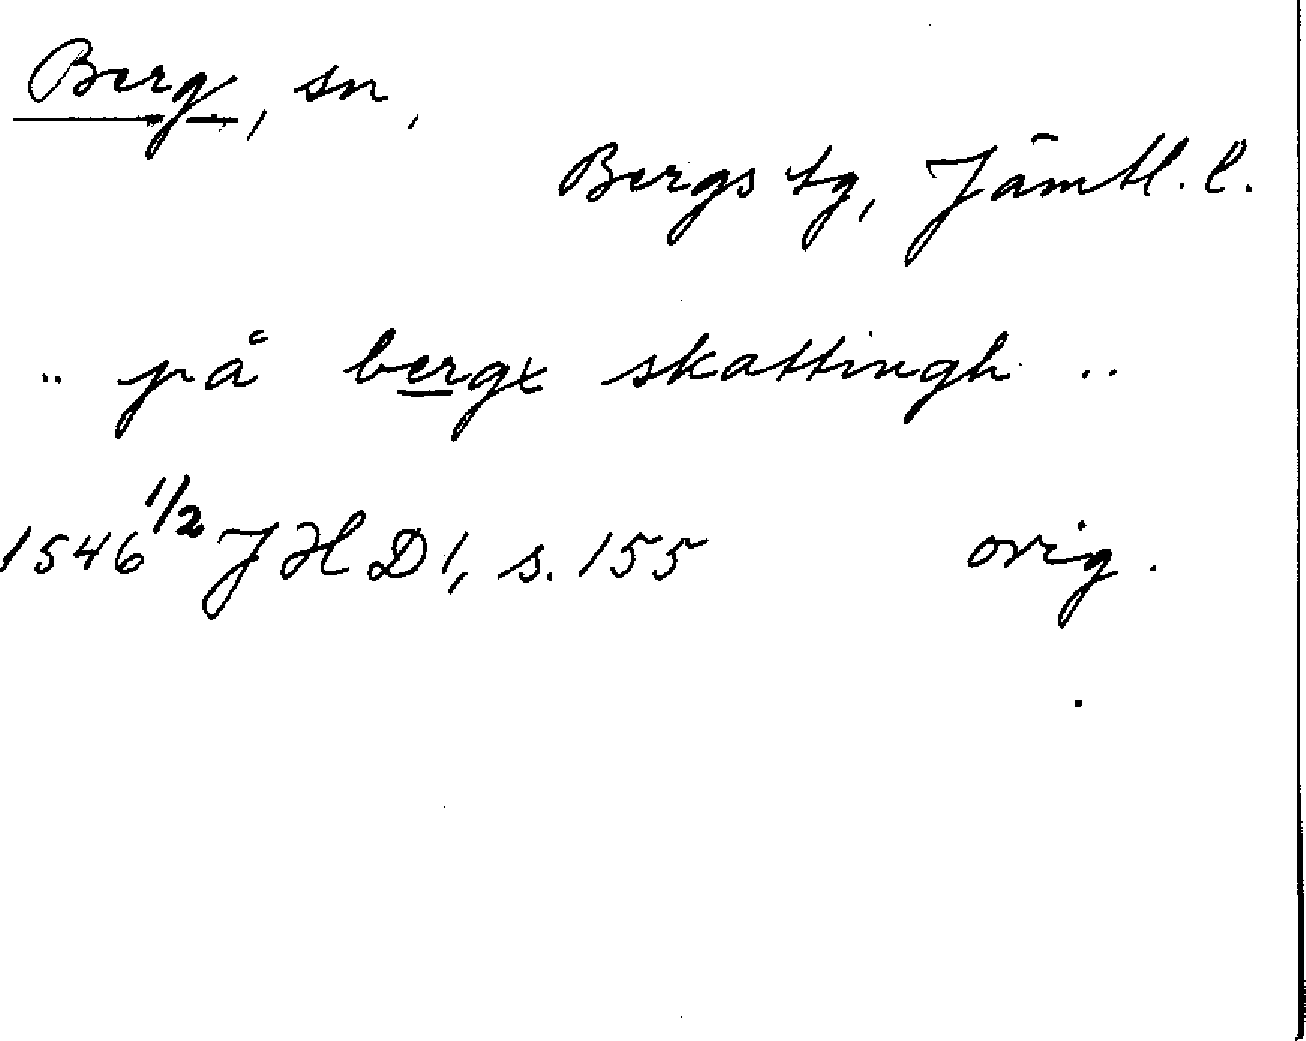 Berg, sn,
Bergs tg, Jämtl. l.
.. på bergx skattingh ..
1546 1/2 JHD 1, s. 155 orig.